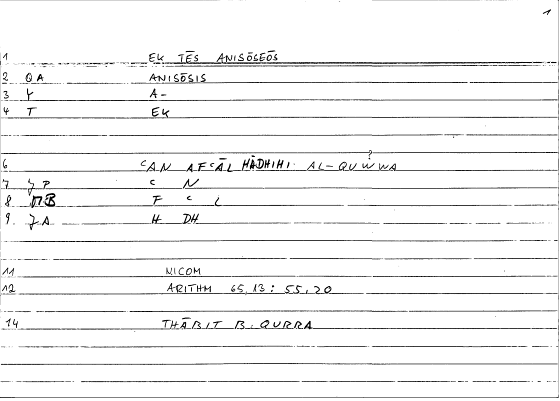 1
1 EK TĒS ANISŌSEŌS
2 QA ANISŌSIS
3 A-
4 T EK
6 ʿAN AFʿĀL HĀDHIHI AL-QUWWA
?
7 P ʿ N
8 B F ʿ L
9 A H DH
11 NICOM
12 ARITHM 65,13 : 55,20
14 THĀBIT B. QURRA